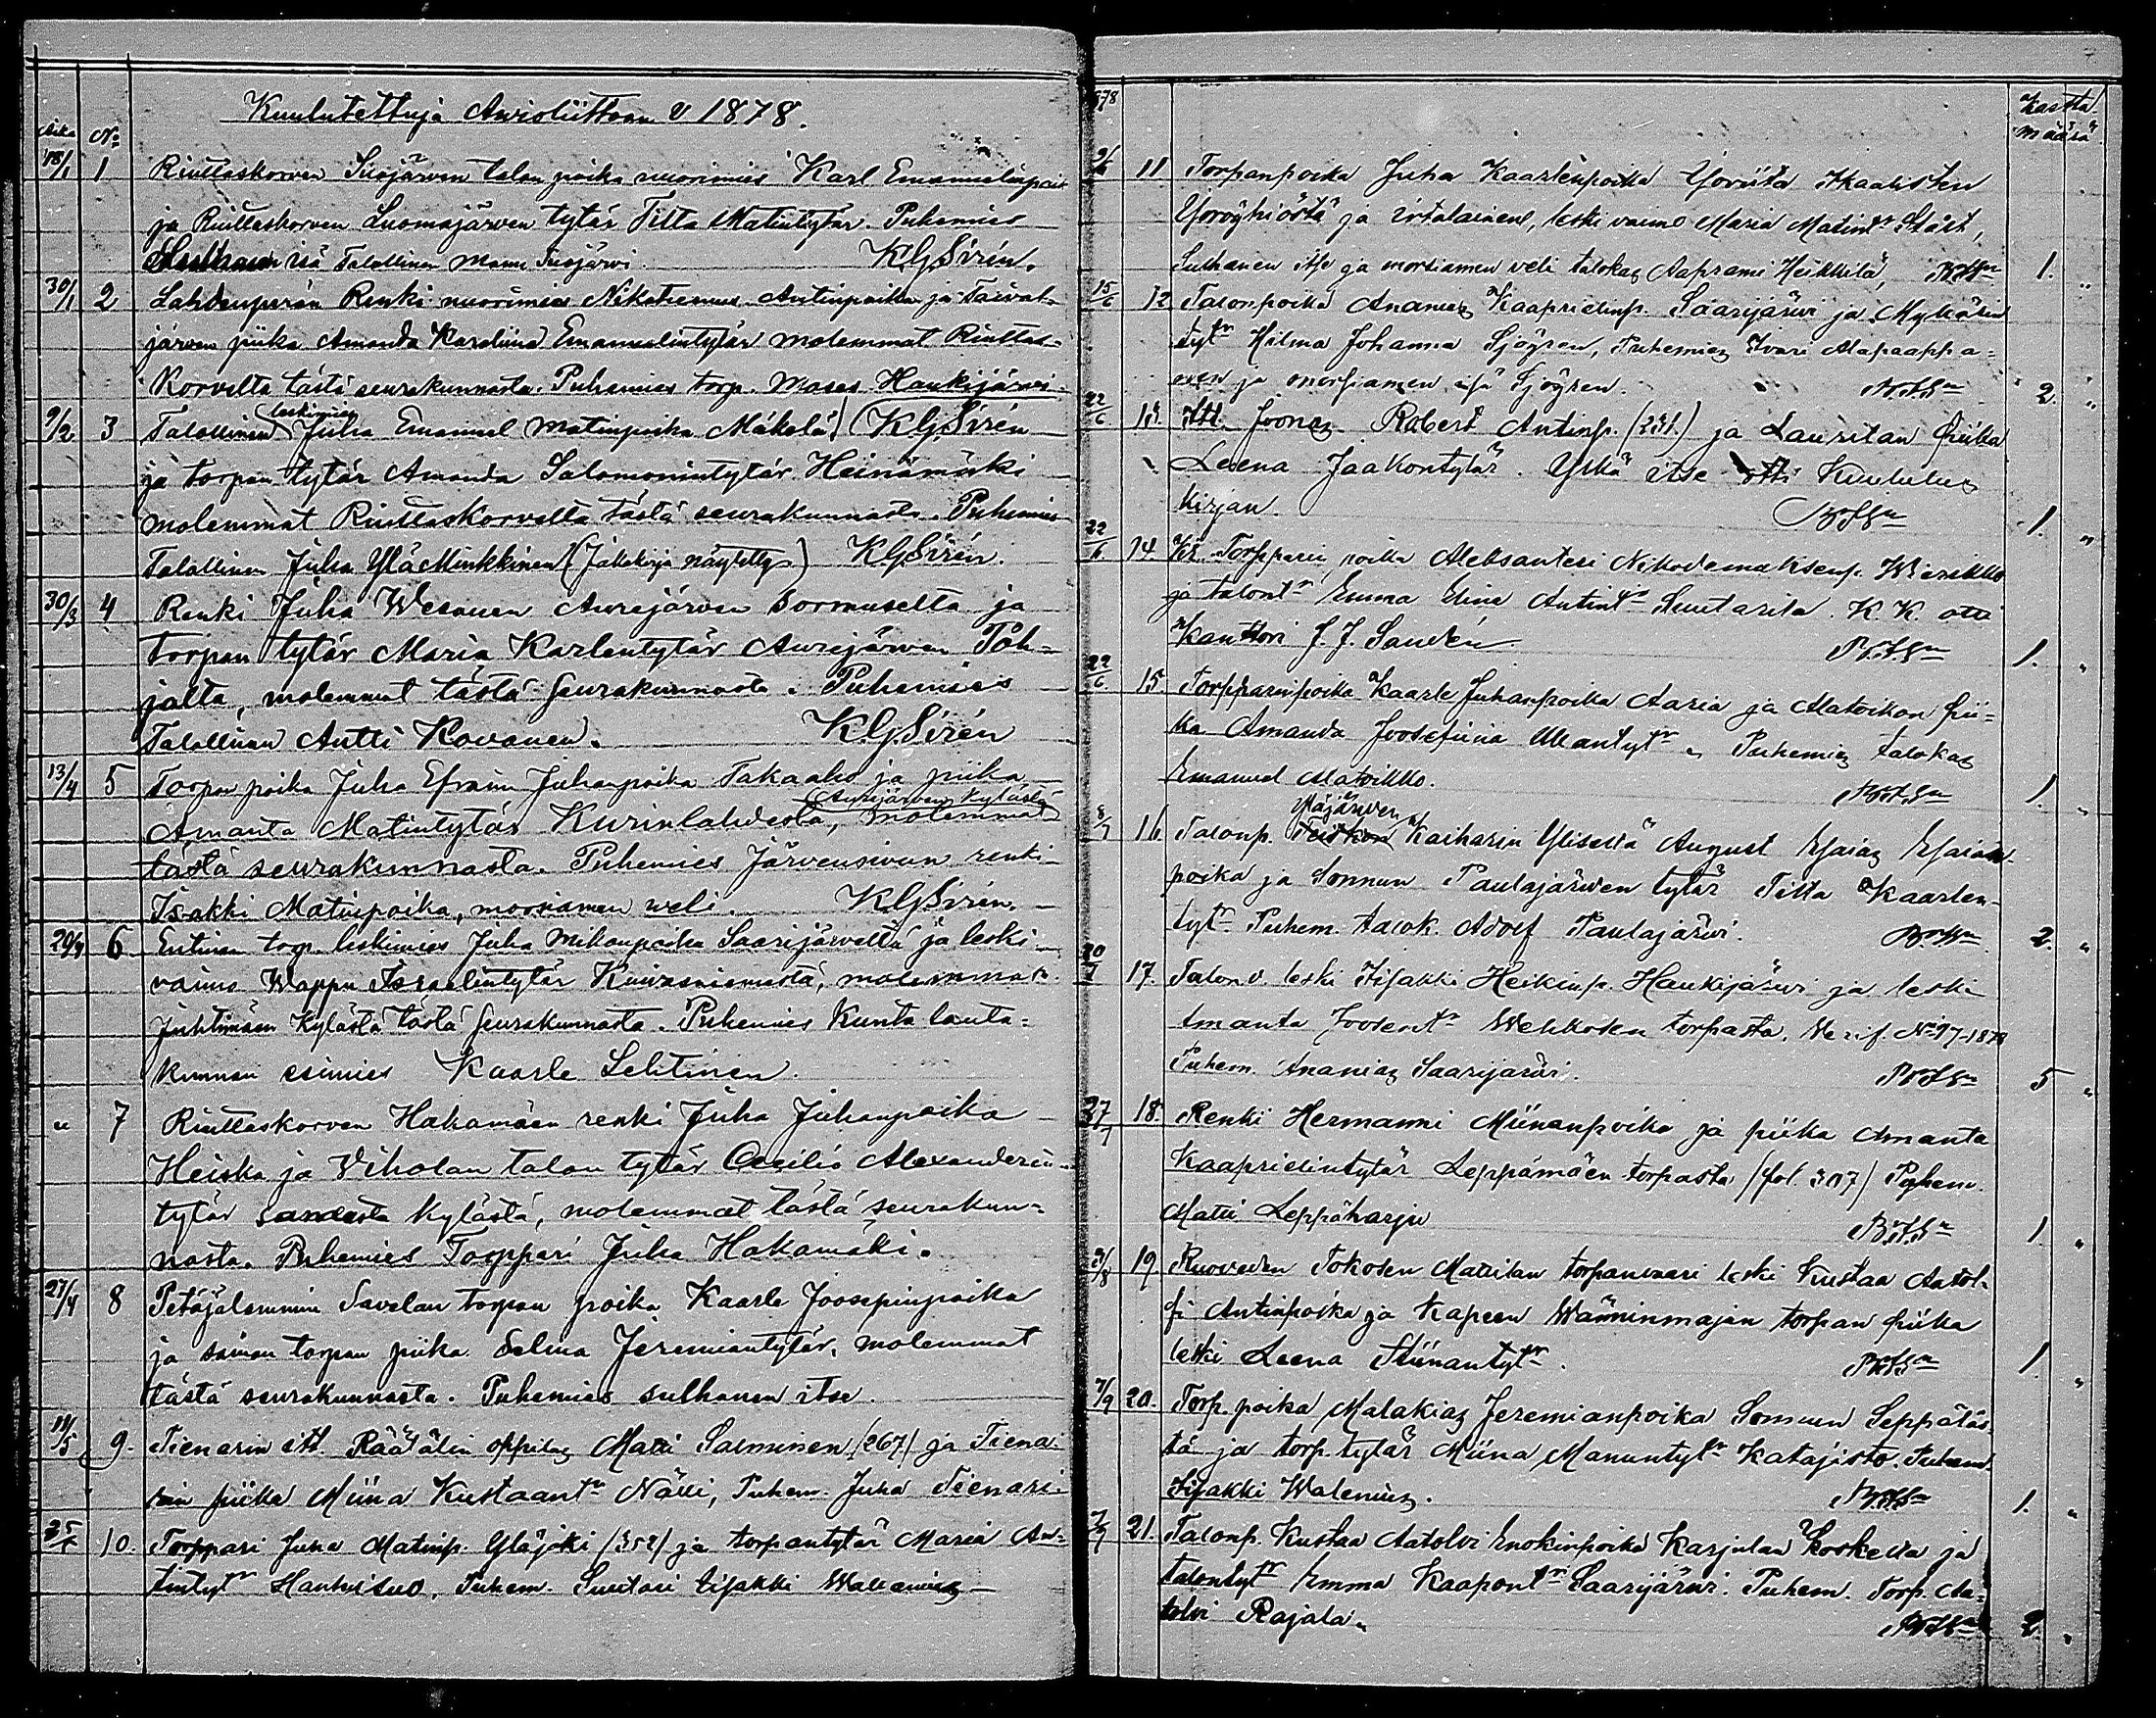 Kuulutettuja Avioliittoon v 1878.
Aika No
18/1 1 Riuttaskorven Susjärven talon poika nuorimies Karl Emanuelinpoik
ja Riuttaskorven Luomajärven tytär Tilta Matintytär. Puhemies
isä Talollinen Manu Susjärvi. KGSirén.
30/1 2 Lahdenperän Renki nuorimies Nikotemus Antinpoika ja Taival-
järven piika Amanda Karoliina Emanuelintytär molemmat Riuttas-
korvelta tästä seurakunnasta. Puhemies torp. Moses Haukijärvi.
9/2 3 Talollinen leskimies Juha Emanuel Matinpoika Mäkelä KGSirén
ja torpan tytär Amanda Salomonintytär Heinämäki
molemmat Riuttaskorvelta tästä seurakunnasta. Puhemies
Talollinen Juha YläMinkkinen (Jakokirja näytetty) KGSirén.
30/3 4 Renki Juha Wesanen Aurejärven Sormuselta ja
torpan tytär Maria Karlentytär Aurejärven Poh-
jalta, molemmat tästä Seurakunnasta. Puhemies
Talollinen Antti Kovanen. KGSirén
13/4 5 Torpan poika Juha Efraim Juhanpoika Takaaho ja piika
Amanta Matintytär Kurinlahdesta, Aurejärven kylästä molemmat
tästä seurakunnasta. Puhemies Järvensivun renki
Isakki Matinpoika, morsiamen veli. KGSirén.
20/4 6 Entinen torp. leskimies Juha Mikonpoika Saarijärveltä ja leski
vaimo Wappu Israelintytär Kuivasniemestä, molemmat
Juhtimäen Kylästä tästä Seurakunnasta. Puhemies Kunta lauta-
kunnan esimies Kaarle Lehtinen.
" 7 Riuttaskorven Hakamäen renki Juha Juhanpoika
Heiska ja Viholan talon tytär Cecilia Alexanderin-
tytär samasta kylästä, molemmat tästä seurakun-
nasta. Puhemies Torppari Juha Hakamäki.
27/4 8 Petäjälammin Savelan torpan poika Kaarle Joosepinpoika
ja saman torpan piika Selma Jeremiantytär, molemmat
tästä seurakunnasta. Puhemies sulhanen itse.
11/5 9. Tienarin itl. Räätälin oppilas Matti Salminen /267/ ja Tiena-
rin piika Miina Kustaantr Nälli, Puhem. Juha Tienari.
25/5 10. Torppari Juha Matinp. Yläjoki /352/ ja torpantytär Maria An-
tintytr Hanhisuo, Puhem. Suutari Eisakki Wallenius
1878 Kastta määrä
11 Torpanpoika Juha Kaarlenpoika Ikaalisten
ja irtolainen, leski vaimo Maria Matintr Ståhl,
Sulhanen itse ja morsiamen veli talokas Aaprami Heikkilä, 1. "
15/6 12. Talonpoika Ananias Kaaprielinp. Saarijärvi ja
tytr Hilma Johanna Sjögren, Puhemies Iivari Alapaappa-
nen ja morsiamen isä Sjögren. 2. "
22/6 13. Itl. Joonas Robert Antinp. (231.) ja Lauritan piika
Leena Jaakontytär. Ylkä itse otti Kuulutus
kirjan. 1. "
22/6 14. Torpparin poika Aleksanteri Nikodemuksenp.
ja talont Emma Elina Antintr Suutarila. K. K. otti
Kanttori J. J. Sandén. 1. "
22/6 15. Torpparinpoika Kaarle Juhanpoika Aaria ja Matoikon pii-
ka Amanda Joosefiina. Puhemies talokas
Emanuel Matoikko. 1. "
8/7 16. Talonp. Yläjärven Kaiharin Yliseltä August Esaias Esaian-
poika ja Sonnun Paulajärven tytär Tilta Kaarlen-
tytr Puhem. talok. Adolf Paulajärvi. 2. "
20/7 17. Talon v. leski Iisakki Heikinp. Haukijärvi ja leski
Amanta Joosentr Wehkosen torpasta. No 97-1878
Puhem. Ananias Saarijärvi. 5 "
27/7 18. Renki Hermanni Miinanpoika ja piika Amanta
Kaaprielintytär Leppämäen torpasta /fol. 307/ Puhem.
Matti Leppäharju 1 "
19. Ruoveden Tokosen Mattilan torpanvaari leski Kustaa Aatol-
fi Antinpoika ja Kapeen Wänninmajan torpan piika
leski Leena Stiinantytr. 1. "
7/9 20. Torp. poika Malakias Jeremianpoika Sonnun Seppäläs-
tä ja torp. tytär Miina Manuntytr Katajisto. Puhem.
Iisakki Walenius. 1. "
7/9 21. Talonp. Kustaa Aatolvi Enokinpoika Karjulan Koskella ja
talontytr Emma Kaapontr Saarijärvi. Puhem. Torp. Aa-
tolvi Rajala. 2. "